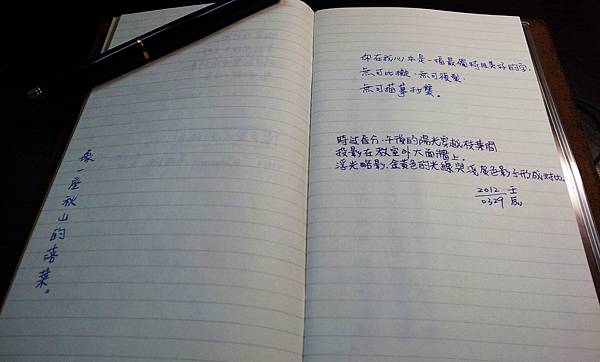 像一座秋山的落葉。
你在我心中是一幅最獨特且美好的字,
無可比擬,無可複製,
無可描摹抄襲。
時近春分,午後的陽光穿越枝葉間
投影在教室外大面牆上。
浮光略影,金黃色的光線與淺灰色影子形成對比。
2012 壬
0329 辰